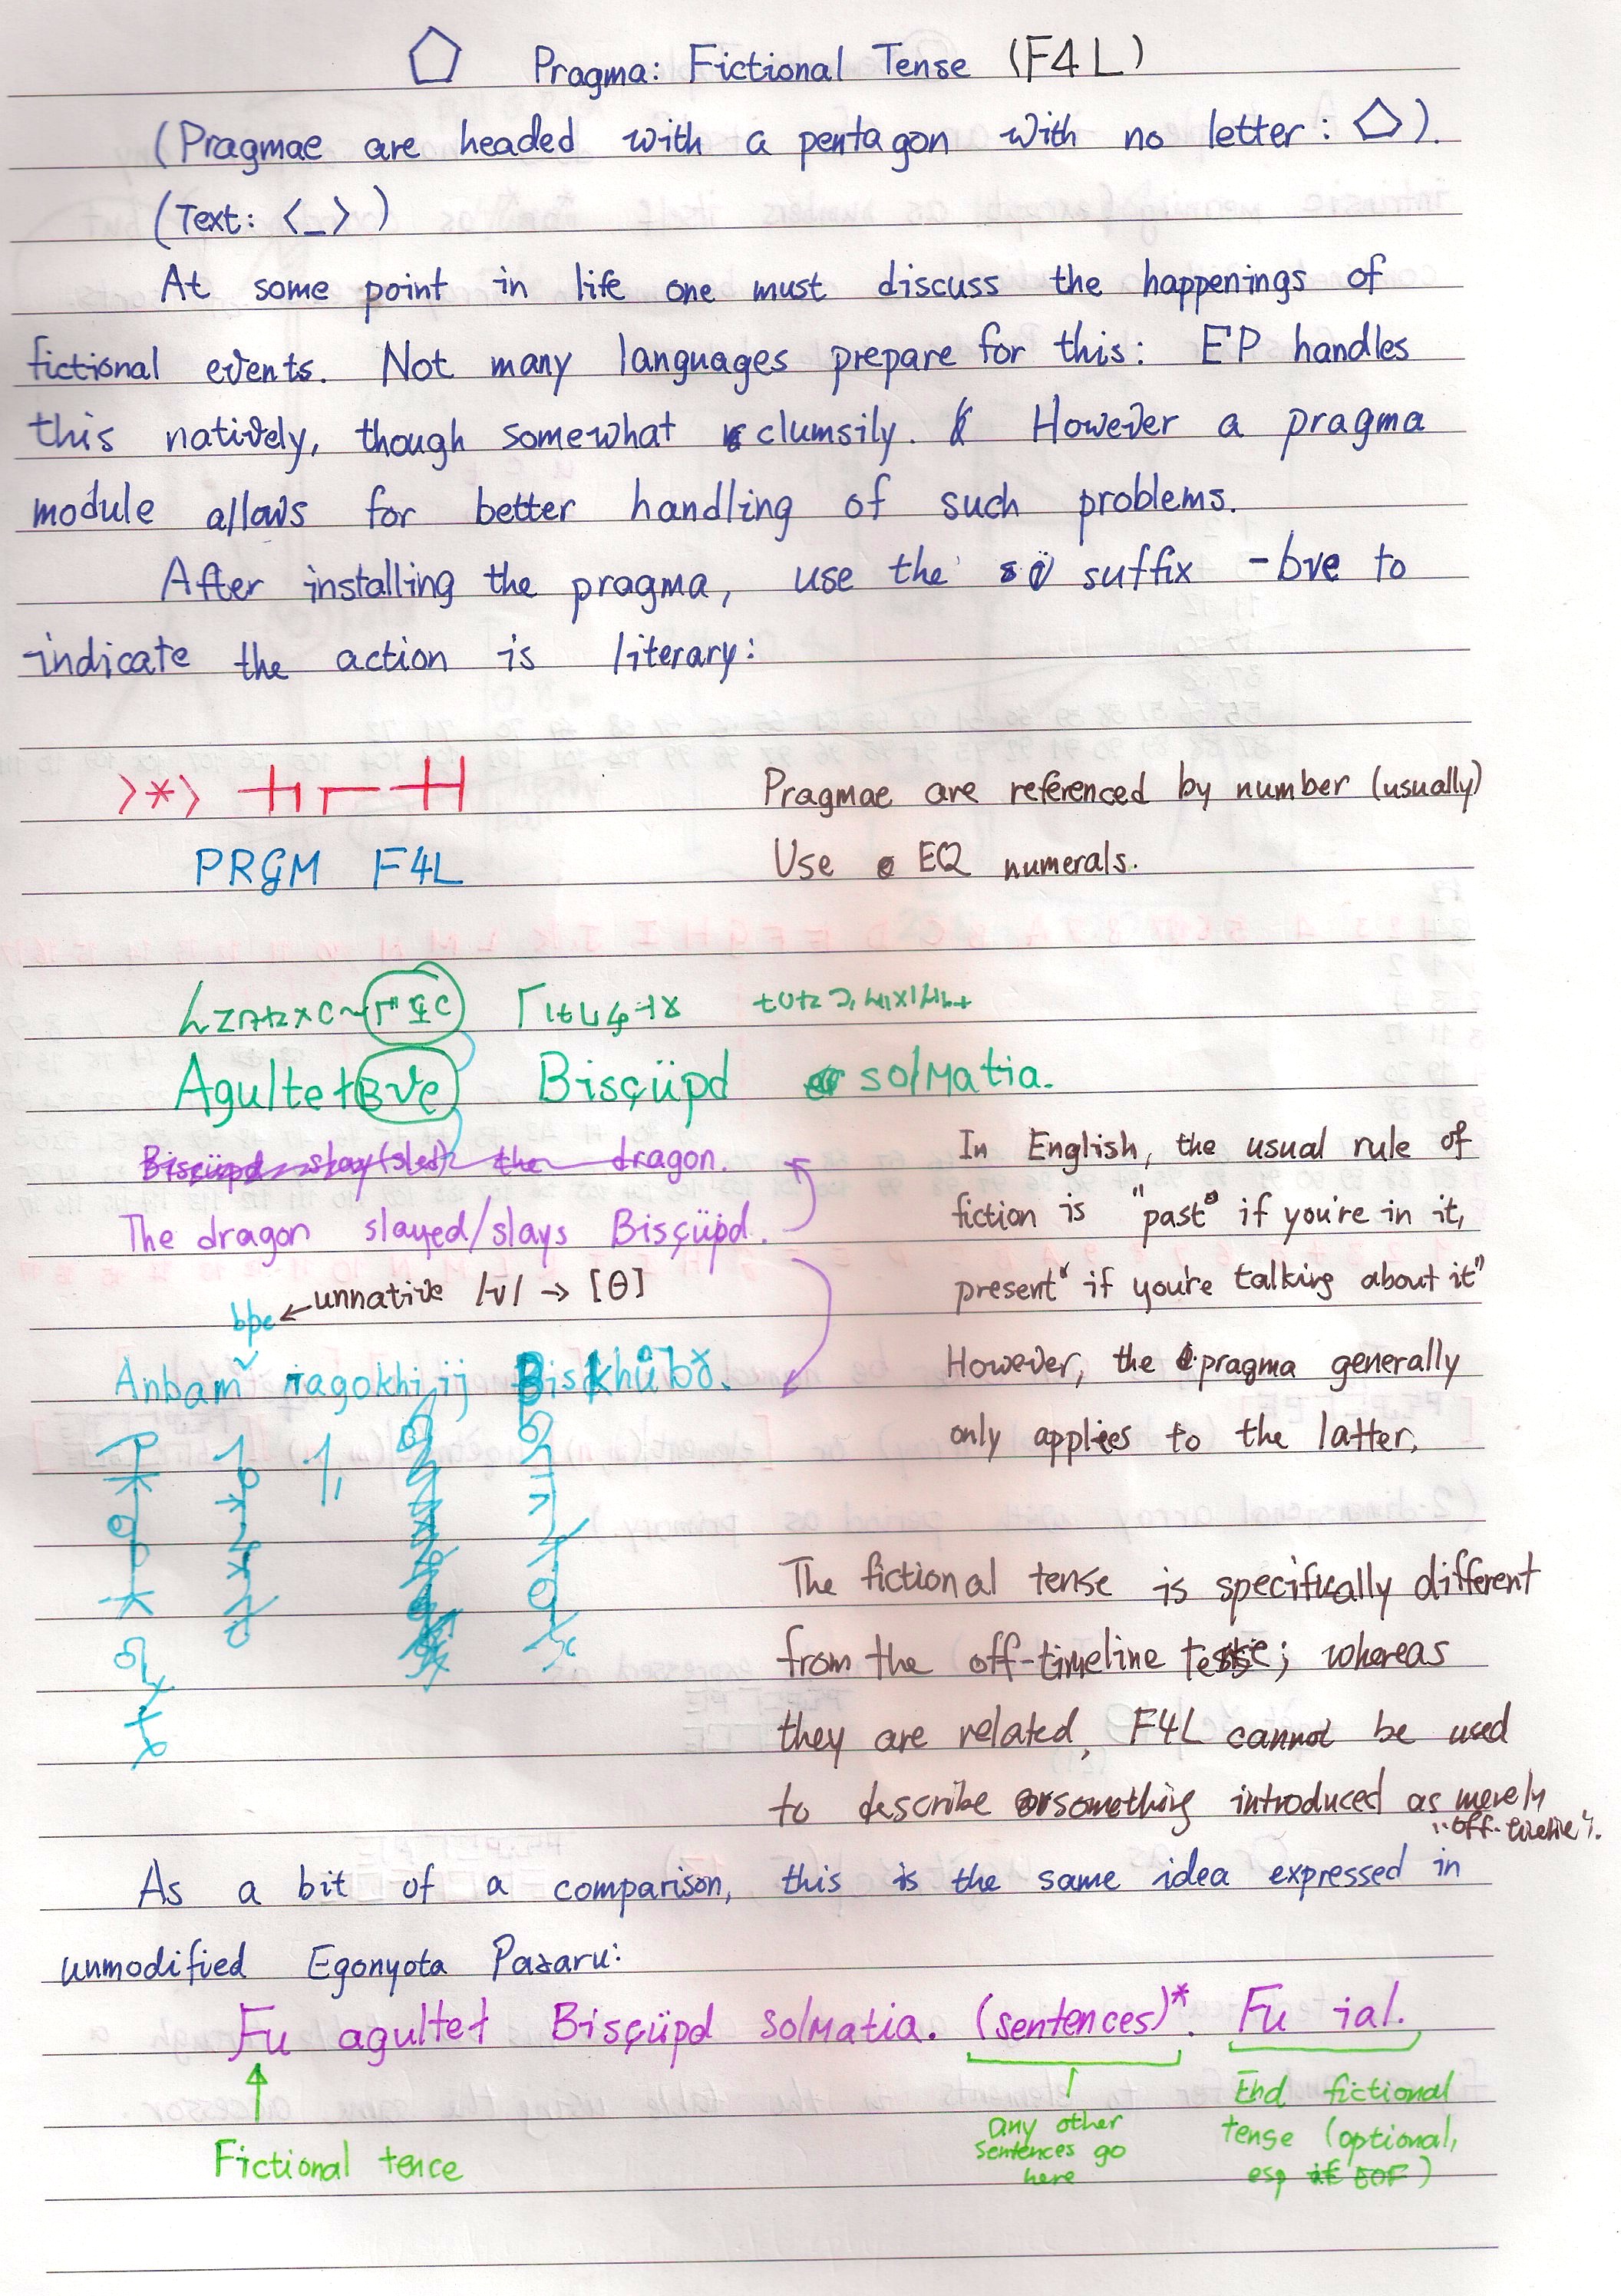 Pragma: Fictional Tense (F4L)
(Pragmae are headed with a pentagon with no letter: ⬠).
(Text: <_>)
At some point in life one must discuss the happenings of
fictional events. Not many languages prepare for this: EP handles
this natively, though somewhat clumsily. However a pragma
module allows for better handling of such problems.
After installing the pragma, use the suffix -bve to
indicate the action is literary:
Pragmae are referenced by number (usually)
PRGM F4L
Use EQ numerals.
Agultetbve Bisçüpd solmatia.
Bisçüpd slay(sled) the dragon.
The dragon slayed/slays Bisçüpd.
In English, the usual rule of
fiction is "past" if you're in it,
present" if you're talking about it"
However, the pragma generally
only applies to the latter.
unnative /v/ → [θ]
bpe
The fictional tense is specifically different
from the off-timeline tense; whereas
they are related, F4L cannot be used
to describe something introduced as merely
"off-timeline".
As a bit of a comparison, this is the same idea expressed in
unmodified Egonyota Pasaru:
Fu agultet Bisçüpd solmatia. (sentences)*. Fu ial.
Fictional tence
any other
sentences go
here
End fictional
tense (optional,
esp if EOF)